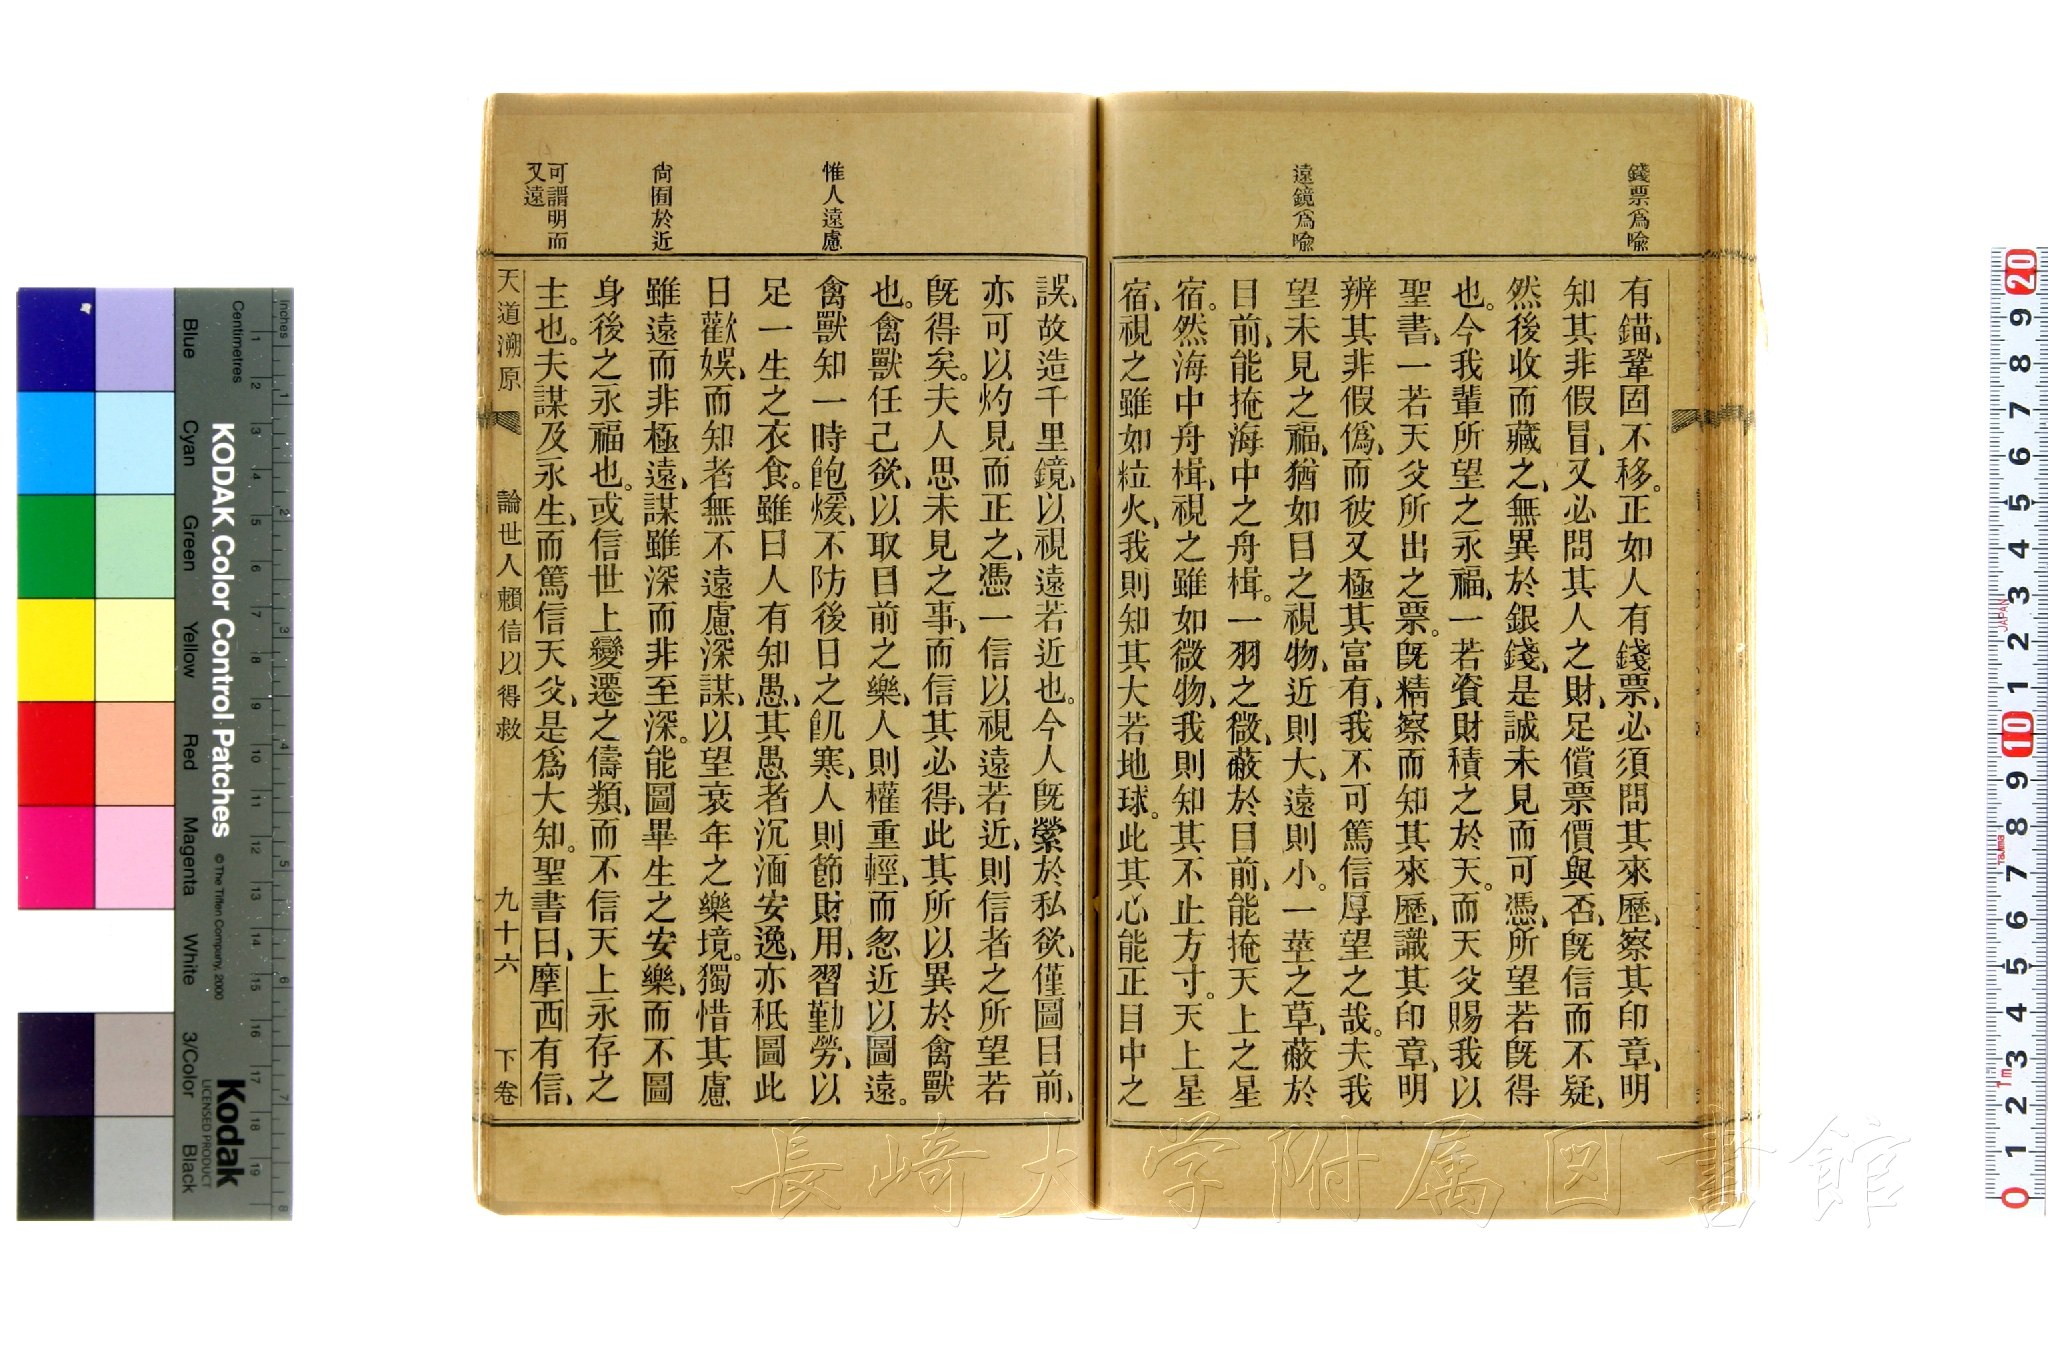 錢票爲喩
遠鏡爲喩
有錨、鞏固不移。正如人有錢票、必須問其來歷、察其印章、明
知其非假冒、又必問其人之財、足償票價與否、旣信而不疑、
然後收而藏之、無異於銀錢、是誠未見而可憑、所望若旣得
也。今我輩所望之永福、一若資財積之於天。而天父賜我以
聖書、一若天父所出之票。旣精察而知其來歷、識其印章、明
辨其非假僞、而彼又極其富有、我不可篤信厚望之哉。夫我
望未見之福、猶如目之視物、近則大、遠則小。一莖之草、蔽於
目前、能掩海中之舟楫。一羽之微、蔽於目前、能掩天上之星
宿。然海中舟楫、視之雖如微物、我則知其不止方寸。天上星
宿、視之雖如粒火、我則知其大若地球。此其心能正目中之
惟人遠慮
尙囿於近
可謂明而
又遠
誤、故造千里鏡、以視遠若近也。今人旣縈於私欲、僅圖目前、
亦可以灼見而正之、憑一信以視遠若近、則信者之所望若
旣得矣。夫人思未見之事、而信其必得、此其所以異於禽獸
也。禽獸任己欲、以取目前之樂、人則權重輕、而忽近以圖遠。
禽獸知一時飽煖、不防後日之飢寒、人則節財用、習勤勞、以
足一生之衣食。雖曰人有知愚、其愚者沉湎安逸、亦秪圖此
日歡娛、而知者無不遠慮深謀、以望衰年之樂境。獨惜其慮
雖遠而非極遠、謀雖深而非至深。能圖畢生之安樂、而不圖
身後之永福也。或信世上變遷之儔類、而不信天上永存之
主也。夫謀及永生、而篤信天父、是爲大知。聖書曰、摩西有信、
天道溯原
論世人賴信以得救
九十六
下卷
長崎大学附属図書館
inches
Centimetres
KODAK Color Control Patches
© The Tiffen Company, 2000
Kodak
LICENSED PRODUCT
Blue
Cyan
Green
Yellow
Red
Magenta
White
3/Color
Black
1 2 3 4 5 6 7 8
1 2 3 4 5 6 7 8 9 10 11 12 13 14 15 16 17 18 19
0 1 2 3 4 5 6 7 8 9 10 1 2 3 4 5 6 7 8 9 20
JAPAN
Tajima